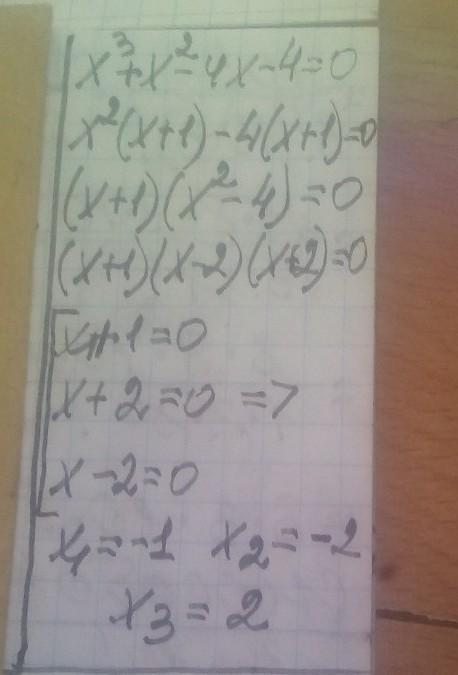 x³+x²-4x-4=0
x²(x+1)-4(x+1)=0
(x+1)(x²-4)=0
(x+1)(x-2)(x+2)=0
x+1=0
x+2=0 =>
x-2=0
x₁=-1 x₂=-2
x₃=2